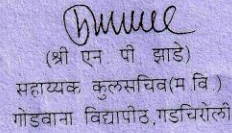 (श्री एन पी झाडे)
सहाय्यक कुलसचिव(म.वि.)
गोंडवाना विद्यापीठ,गडचिरोली